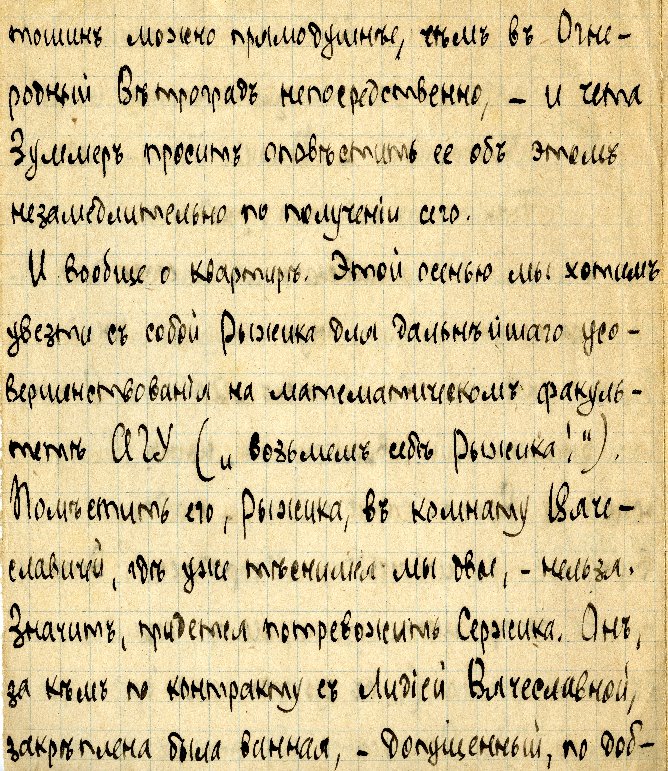 тошинъ можно прямодушнѣе, чѣмъ въ Огне-
родный Вѣтроградъ непосредственно, – и чета
Зуммеръ проситъ оповѣстить ее объ этомъ
незамедлительно по полученіи сего.
И вообще о квартирѣ. Этой осенью мы хотимъ
увезти съ собой Рыжика для дальнѣйшаго усо-
вершенствованія на математическомъ факуль-
тетѣ АГУ („и возьмемъ себѣ Рыжика!“).
Помѣстить его, Рыжика, въ комнату Вяче-
славичей, гдѣ уже тѣснимся мы двое, – нельзя.
Значитъ, придется потревожить Сержика. Онъ,
за кѣмъ по контракту съ Лидіей Вячеславной,
закрѣплена была ванная, – допущенный, по доб-